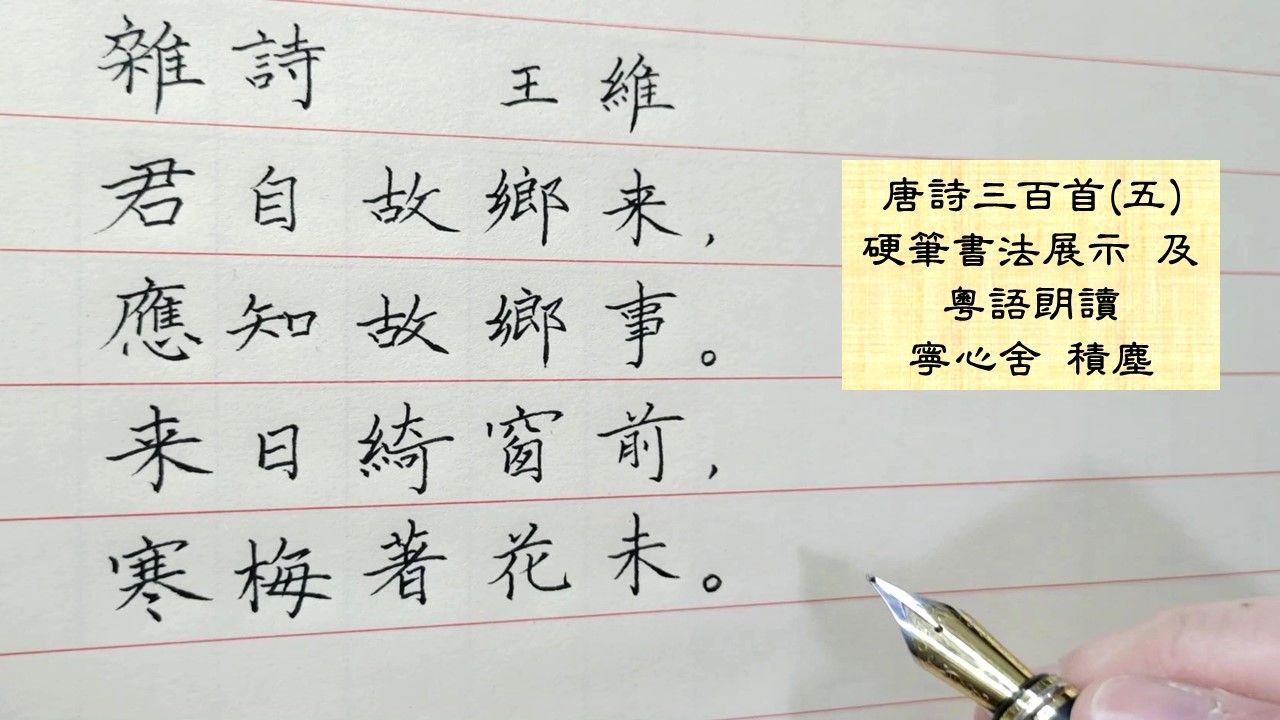 雜詩 王維
君自故鄉来，
應知故鄉事。
来日綺窗前，
寒梅著花未。
唐詩三百首(五)
硬筆書法展示 及
粵語朗讀
寧心舍 積塵